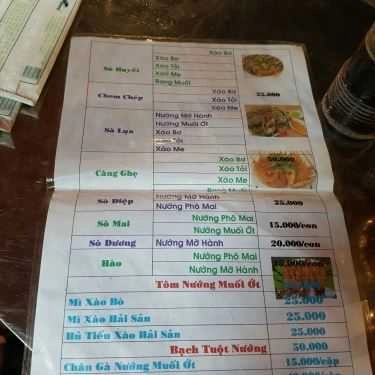 Xào Bơ
Sò Huyết
Xào Bơ
Xào Tỏi
Xào Me
Rang Muối
Chem Chép
Xào Bơ
Xào Tỏi
Xào Me
25.000
Sò Lụa
Nướng Mỡ Hành
Nướng Muối Ớt
Xào Bơ
Tỏi
Xào Me
Càng Ghẹ
Xào Bơ
Xào Tỏi
Xào Me
Rang Muối
50.000
Sò Điệp
Nướng Mỡ Hành
Nướng Phô Mai
25.000
Sò Mai
Nướng Phô Mai
Nướng Muối Ớt
15.000/con
Sò Dương
Nướng Mỡ Hành
20.000/con
Hào
Nướng Phô Mai
Nướng Muối Ớt
Nướng Mỡ Hành
Tôm Nướng Muối Ớt
Mì Xào Bò
25.000
Mì Xào Hải Sản
25.000
Hủ Tiếu Xào Hải Sản
25.000
Bạch Tuột Nướng
50.000
Chân Gà Nướng Muối Ớt
15.000/cặp